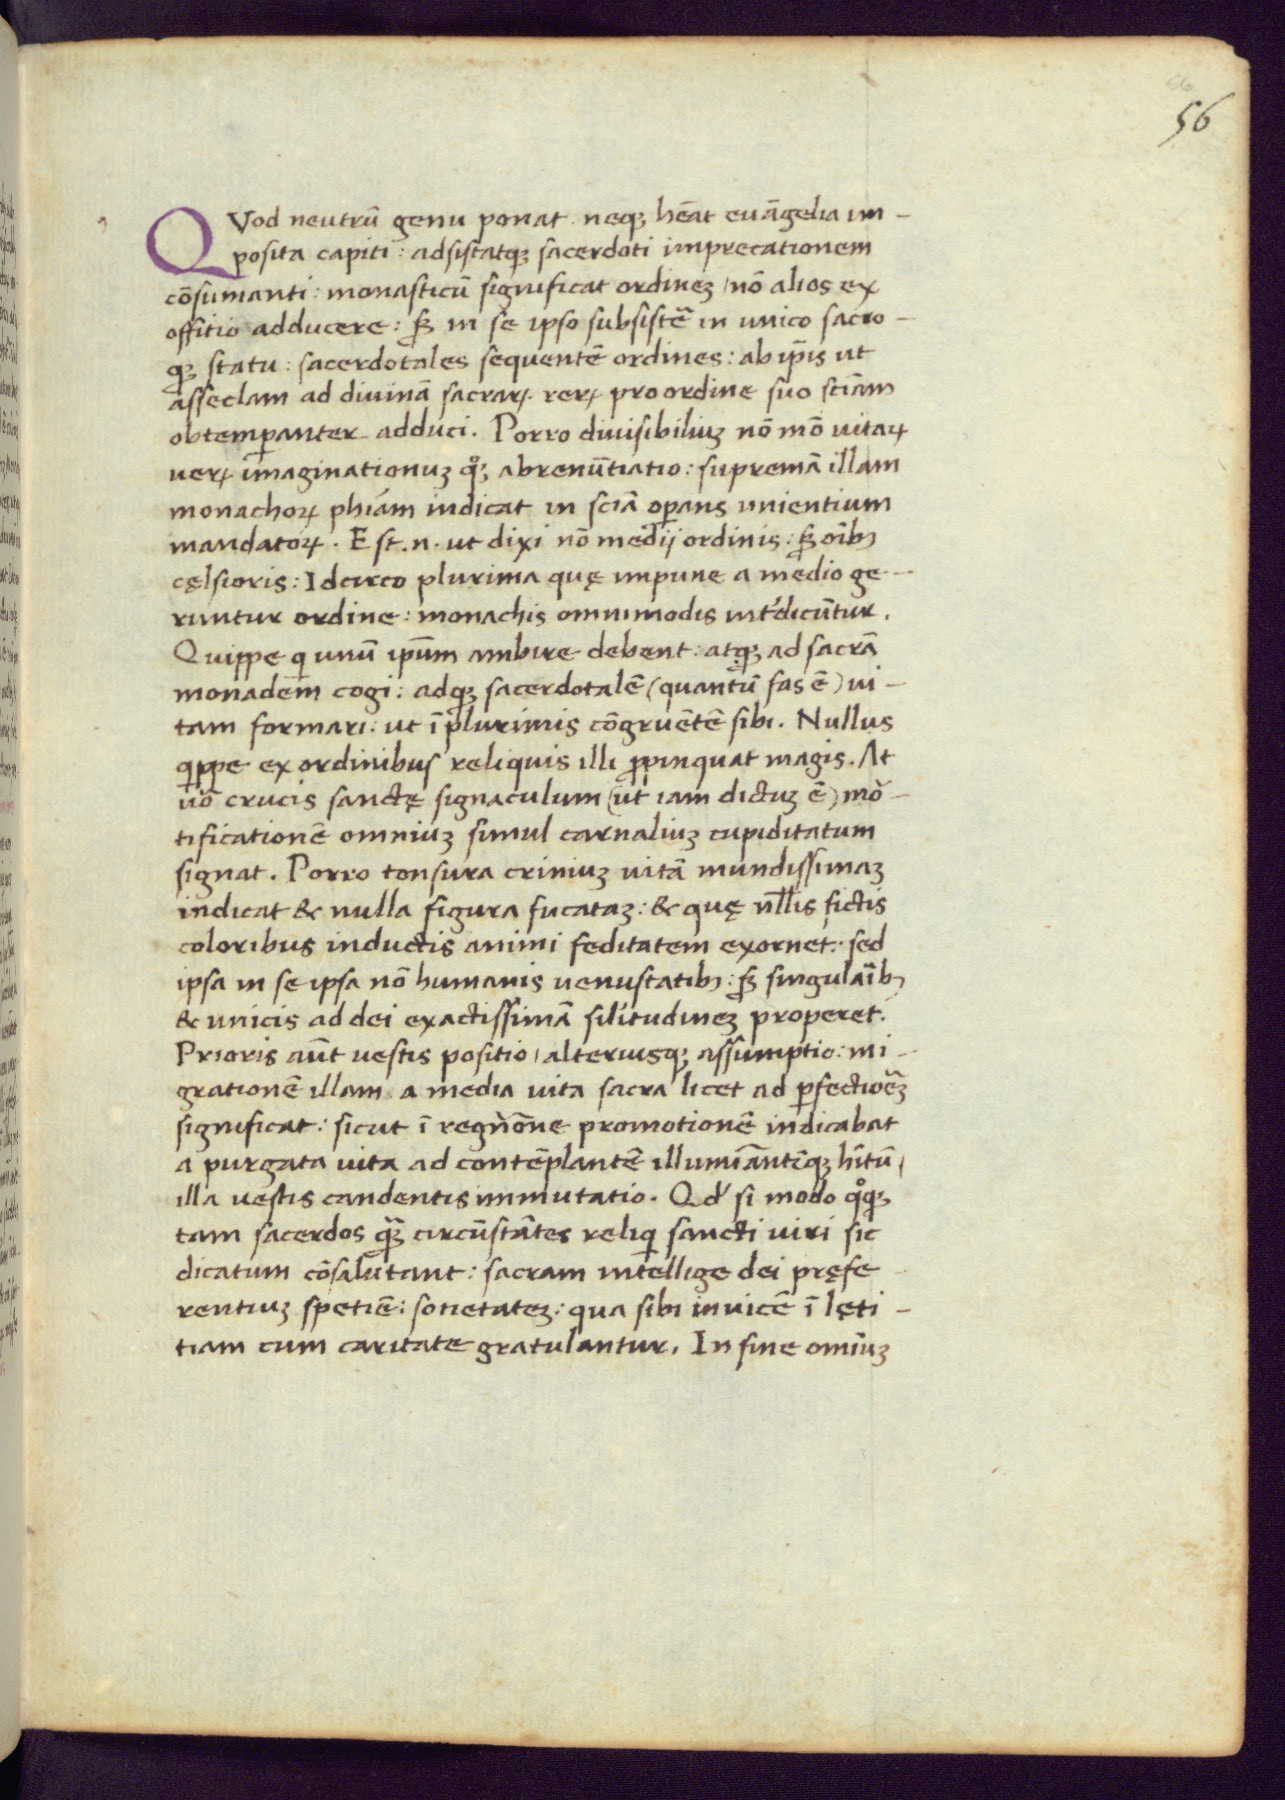 56
QVod neutrū genu ponat neqꝫ hēat euāgelia im-
posita capiti : adsistatqꝫ sacerdoti imprecationem
cōsumanti : monasticū significat ordineꝫ / nō alios ex
offitio adducere : sꝫ in se ipso subsistē in unico sacro-
qꝫ statu : sacerdotales sequentē ordines : ab ip̄is ut
asseclam ad diuinā sacraꝝ reꝝ pro ordine suo sciām
obtemꝑanter adduci. Porro diuisibiliuꝫ nō mō uitaꝝ
ueꝝ imaginationuꝫ qͦꝫ abrenūtiatio : supremā illam
monachoꝝ phiām indicat in sciā oꝑans unientium
mandatoꝝ. Est .n. ut dixi nō medij ordinis : sꝫ oībꝫ
cęlsioris : Idcirco plurima quę impune a medio ge-
runtur ordine : monachis omnimodis int'dicūtur.
Quippe q unū ipūm ambire debent : atqꝫ ad sacrā
monadem cogi : adqꝫ sacerdotalē (quantū fas ē) ui-
tam formari : ut ī plurimis cōgruētē sibi. Nullus
qippe ex ordinibus reliquis illi ꝓpinquat magis. At
uō crucis sanctę signaculum (ut iam dictuꝫ ē) mō-
tificationē omniuꝫ simul carnaliuꝫ cupiditatum
signat. Porro tonsura criniuꝫ uitā mundissimaꝫ
indicat & nulla figura fucataꝫ : & quę nllis fictis
coloribus inductis animi feditatem exornet : sed
ipsa in se ipsa nō humanis uenustatibꝫ : sꝫ singulaībꝫ
& unicis ad dei exactissimā sil'itudineꝫ properet.
Prioris aūt uestis positio / alteriusqꝫ assumptio : mi-
grationē illam a media uita sacra licet ad ꝑfectioēꝫ
significat : sicut ī regn̄ōne promotionē indicabat
a purgata uita ad contēplantē illumiāntēqꝫ hītū /
illa uestis candentis immutatio. Qd' si modo qͦqꝫ
tam sacerdos qꝫ̄ circūstātes reliq sancti uiri sic
dicatum cōsalutant : sacram intellige dei pręfe
rentiuꝫ spetiē : sotietateꝫ : qua sibi inuicē ī lęti-
tiam cum caritate gratulantur. In fine omīuꝫ